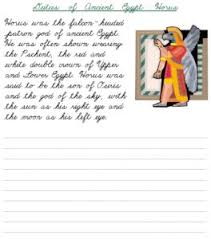 Deities of Ancient Egypt Horus
Horus was the falcon-headed
patron god of ancient Egypt.
He was often shown wearing
the Pschent, the red and
white double crown of Upper
and Lower Egypt. Horus was
said to be the son of Osiris
and the god of the sky, with
the sun as his right eye and
the moon as his left eye.